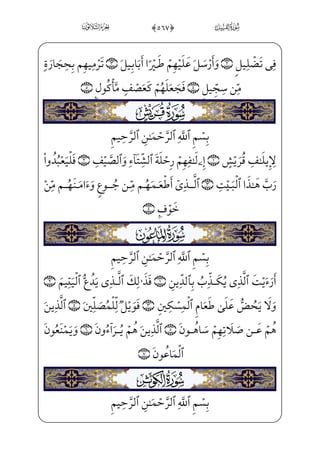 سورة الفيل ﴿٥٦٧﴾ الجزء الثلاثون
فِى تَضْلِيلٍ ۝٢ وَأَرْسَلَ عَلَيْهِمْ طَيْرًا أَبَابِيلَ ۝٣ تَرْمِيهِم بِحِجَارَةٍ
مِّن سِجِّيلٍ ۝٤ فَجَعَلَهُمْ كَعَصْفٍ مَّأْكُولٍ ۝٥
سُورَةُ قُرَيْشٍ
بِسْمِ ٱللَّهِ ٱلرَّحْمَٰنِ ٱلرَّحِيمِ
لِإِيلَٰفِ قُرَيْشٍ ۝١ إِۦلَٰفِهِمْ رِحْلَةَ ٱلشِّتَآءِ وَٱلصَّيْفِ ۝٢ فَلْيَعْبُدُوا۟
رَبَّ هَٰذَا ٱلْبَيْتِ ۝٣ ٱلَّذِىٓ أَطْعَمَهُم مِّن جُوعٍ وَءَامَنَهُم مِّنْ
خَوْفٍۭ ۝٤
سُورَةُ الْمَاعُونِ
بِسْمِ ٱللَّهِ ٱلرَّحْمَٰنِ ٱلرَّحِيمِ
أَرَءَيْتَ ٱلَّذِى يُكَذِّبُ بِٱلدِّينِ ۝١ فَذَٰلِكَ ٱلَّذِى يَدُعُّ ٱلْيَتِيمَ ۝٢
وَلَا يَحُضُّ عَلَىٰ طَعَامِ ٱلْمِسْكِينِ ۝٣ فَوَيْلٌ لِّلْمُصَلِّينَ ۝٤ ٱلَّذِينَ
هُمْ عَن صَلَاتِهِمْ سَاهُونَ ۝٥ ٱلَّذِينَ هُمْ يُرَآءُونَ ۝٦ وَيَمْنَعُونَ
ٱلْمَاعُونَ ۝٧
سُورَةُ الْكَوْثَرِ
بِسْمِ ٱللَّهِ ٱلرَّحْمَٰنِ ٱلرَّحِيمِ